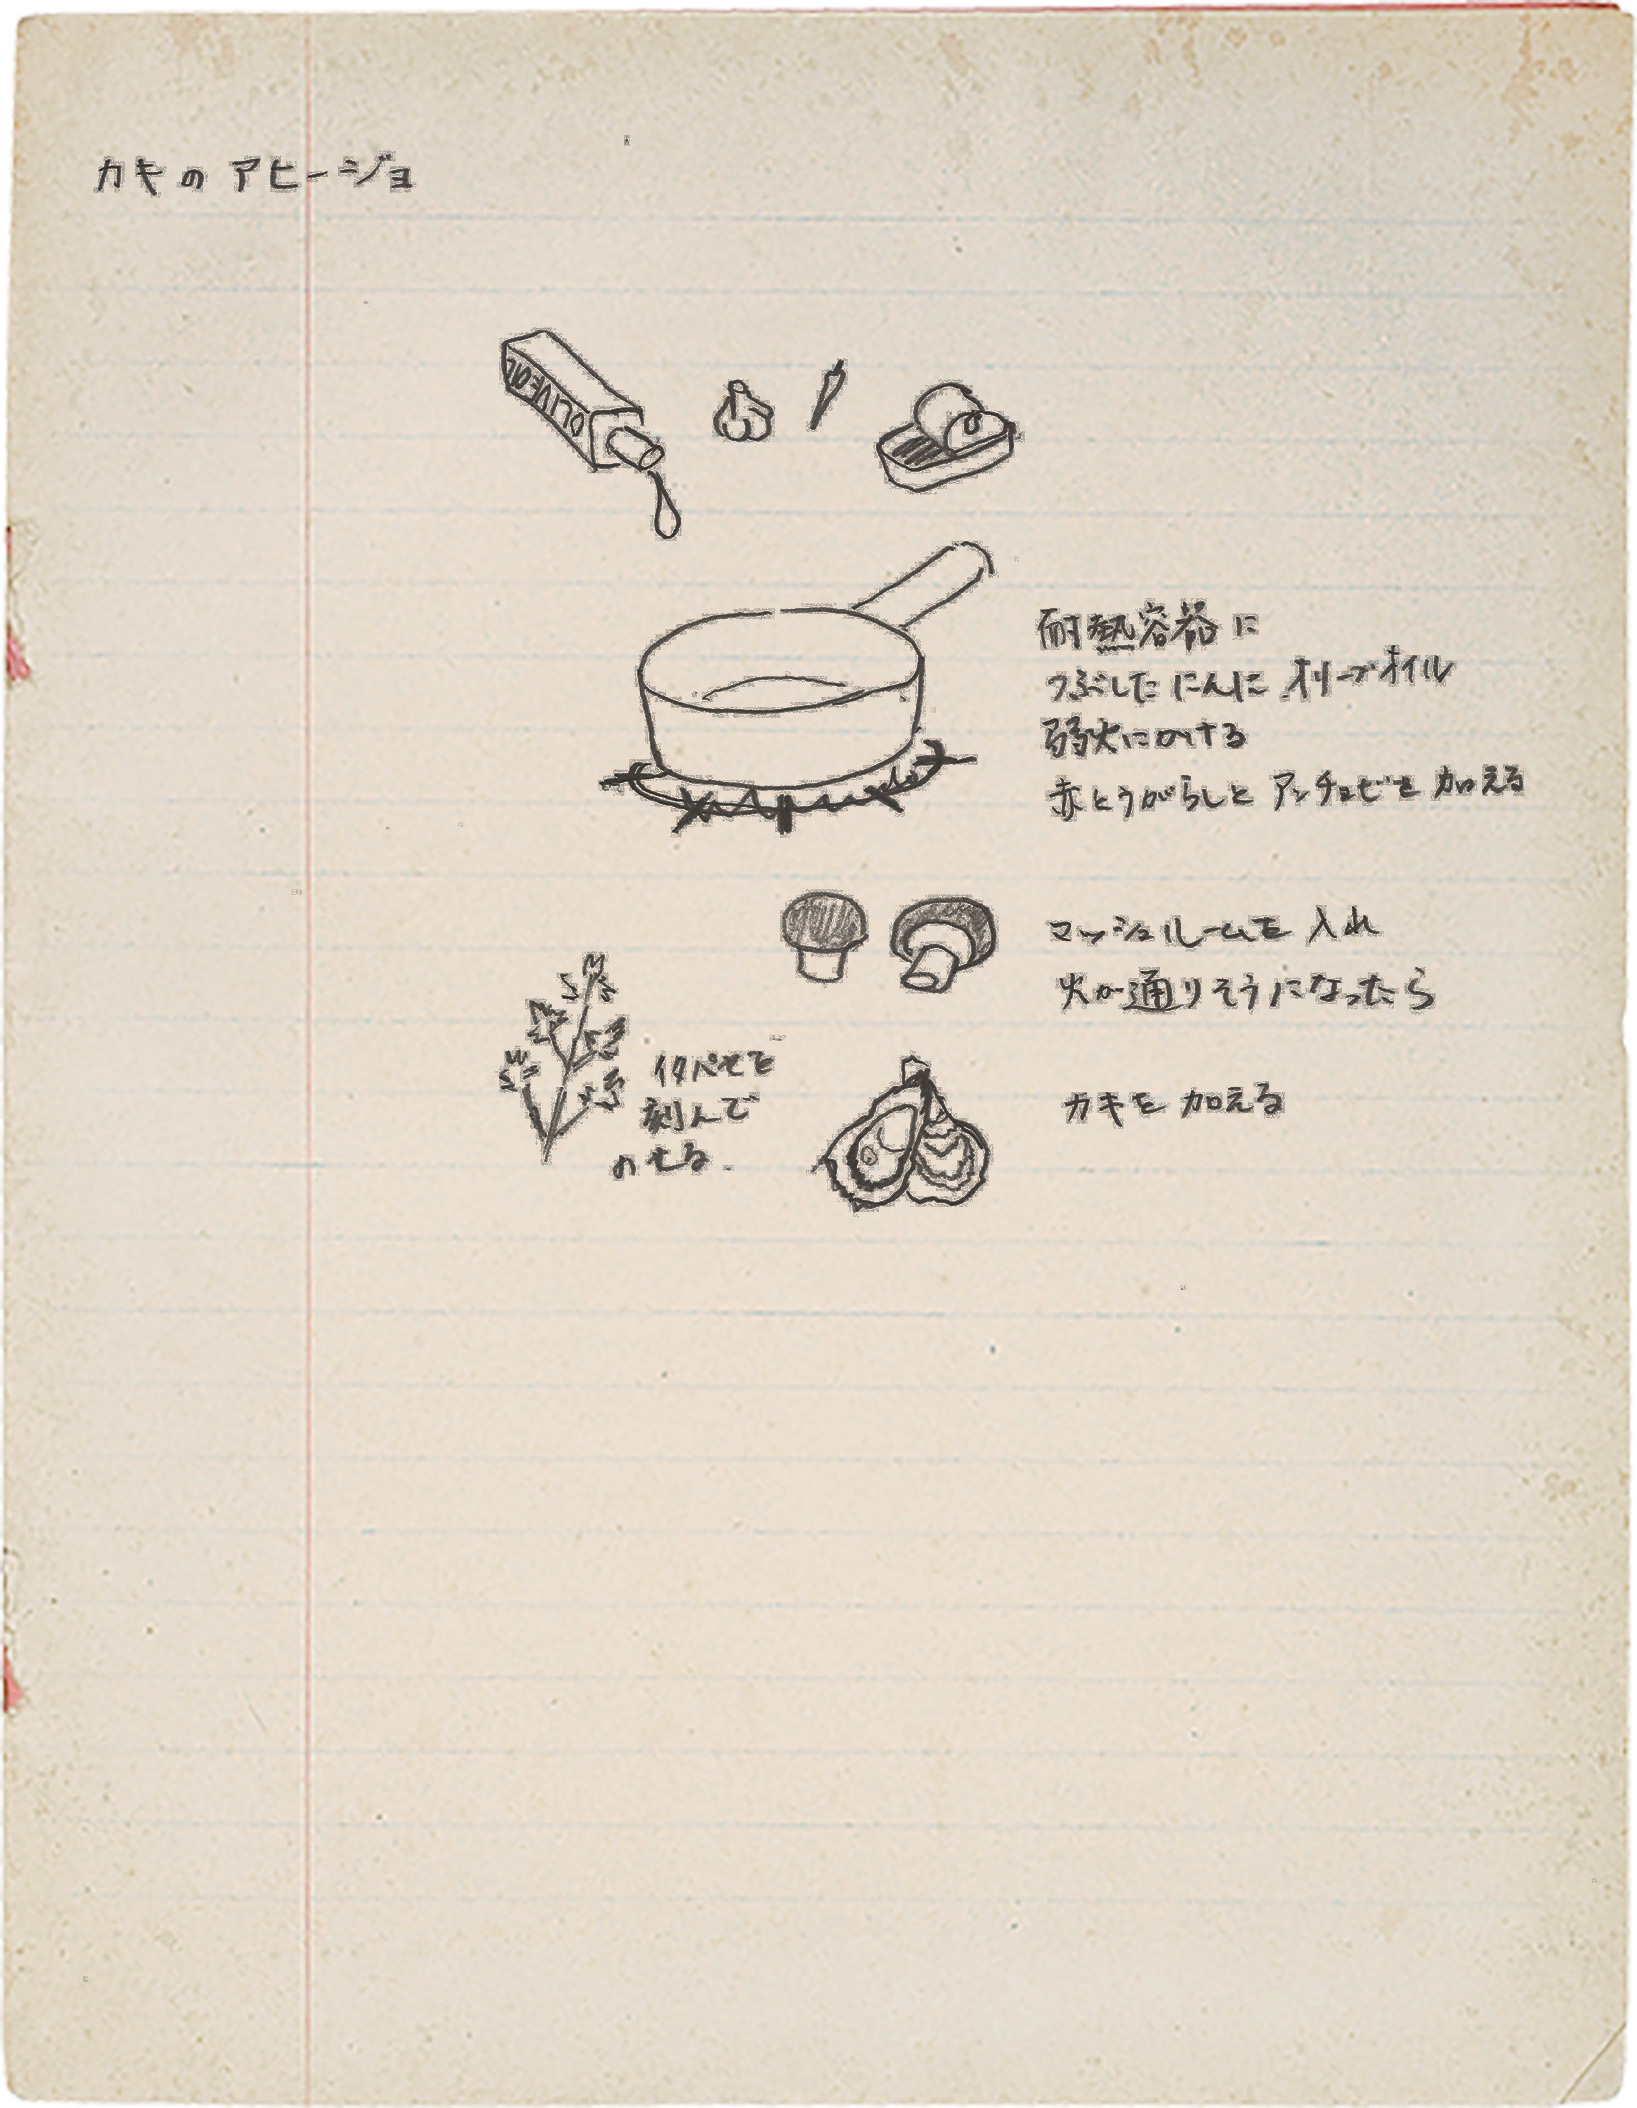 カキの アヒージョ
OLIVE OIL
耐熱容器に
つぶした にんに オリーブオイル
弱火にかける
赤とうがらしと アンチョビを 加える
マッシュルームを 入れ
火が通りそうになったら
カキを 加える
イタパセを
刻んで
のせる.